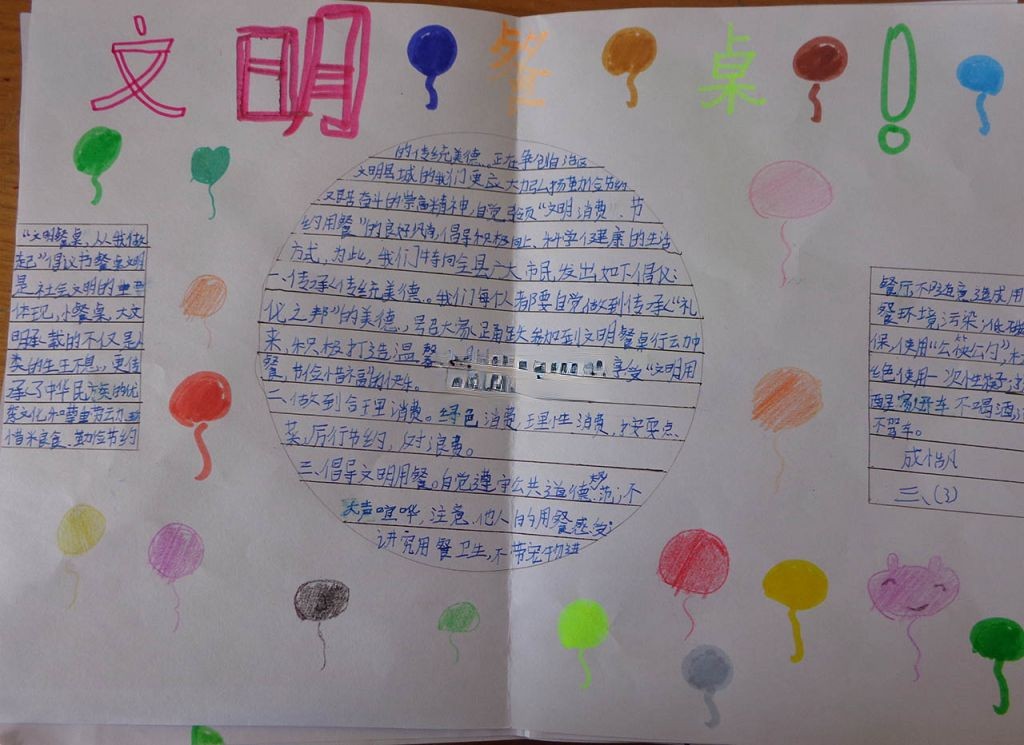 文明餐桌!
“文明餐桌,从我做
起”倡议书餐桌文明
是社会文明的重要
体现,小餐桌,大文
明承载的不仅是人
类的生生不息,更传
承了中华民族的优
秀文化和尊重劳动、珍
惜米良食、勤俭节约
的传统美德。正在争创自治区
文明县城的我们更应大力弘扬勤俭节约
艰苦奋斗的崇高精神,自觉引领“文明消费、节
约用餐”的良好风尚,倡导积极向上、科学健康的生活
方式,为此,我们特向全县广大市民发出如下倡仪:
一、传承传统美德。我们每个人都要自觉做到传承“礼
仪之邦”的美德。号召大家踊跃参加到文明餐桌行动中
来,积极打造温馨 享受“文明用
餐,节俭惜福”的快乐。
二、做到合理消费。绿色消费,理性消费,
菜,厉行节约,反对浪费。
三、倡导文明用餐。自觉遵守公共道德规范,不
大声喧哗,注意他人的用餐感受;
讲究用餐卫生,不带宠物进
餐厅,不随意造成用
餐环境污染;低碳环
保,使用“公筷公勺”,杜
绝使用一次性筷子;
不喝酒,
不驾车。
三、(3)